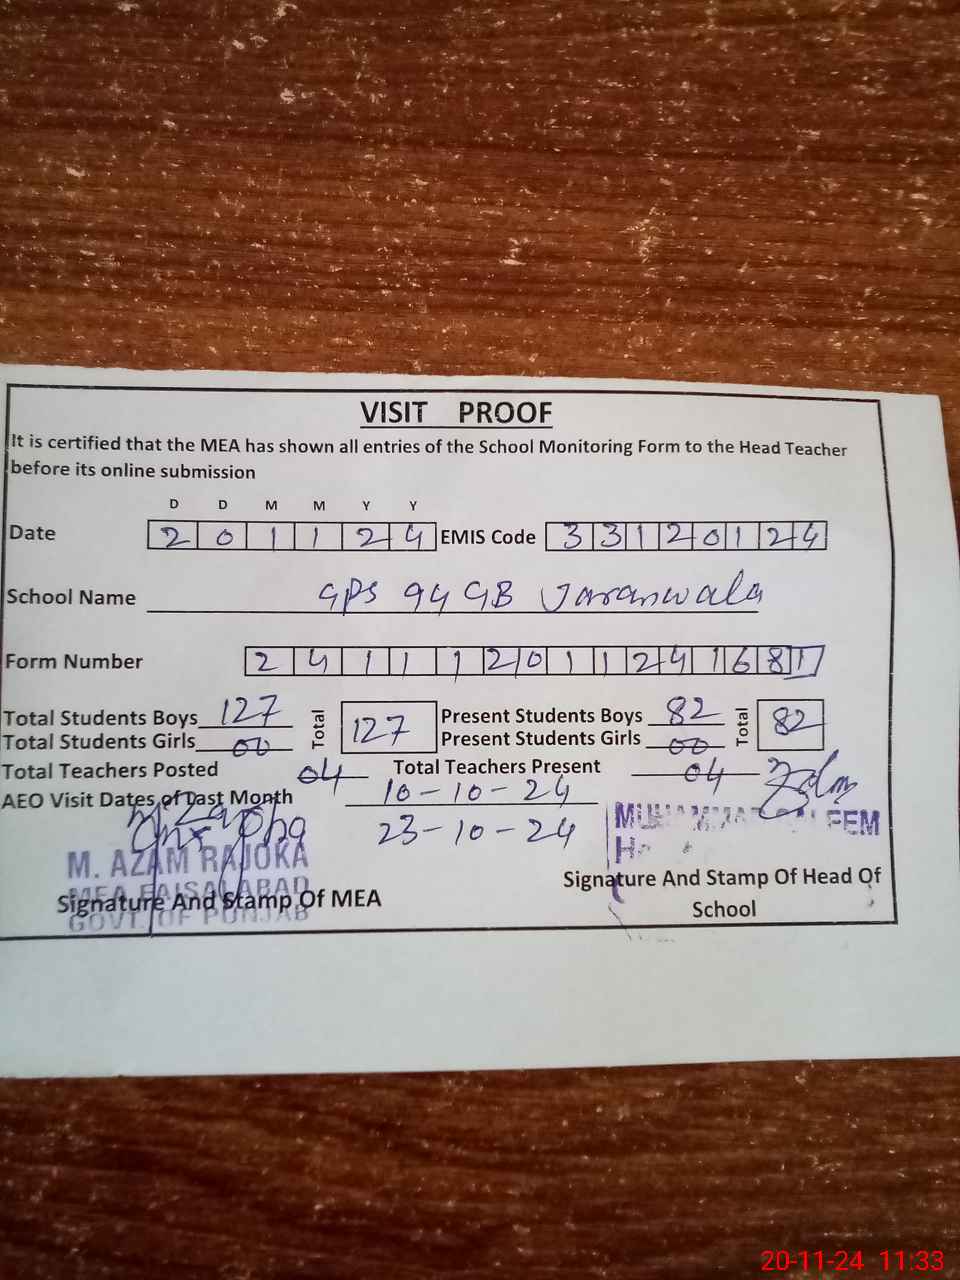 VISIT PROOF
It is certified that the MEA has shown all entries of the School Monitoring Form to the Head Teacher
before its online submission
D D M M Y Y
Date 2 0 1 1 2 4 EMIS Code 3 3 1 2 0 1 2 4
School Name GPS 94 GB Jaranwala
Form Number 2 4 1 1 1 2 0 1 1 2 4 1 6 8 1
Total Students Boys 127 Total 127 Present Students Boys 82 Total 82
Total Students Girls 00 Present Students Girls 00
Total Teachers Posted 04 Total Teachers Present 04
AEO Visit Dates of Last Month 10-10-24
23-10-24
M. AZAM RAJOKA
MEA FAISALABAD
GOVT. OF PUNJAB
Signature And Stamp Of MEA
MUHAMMAD
Signature And Stamp Of Head Of
School
20-11-24 11:33